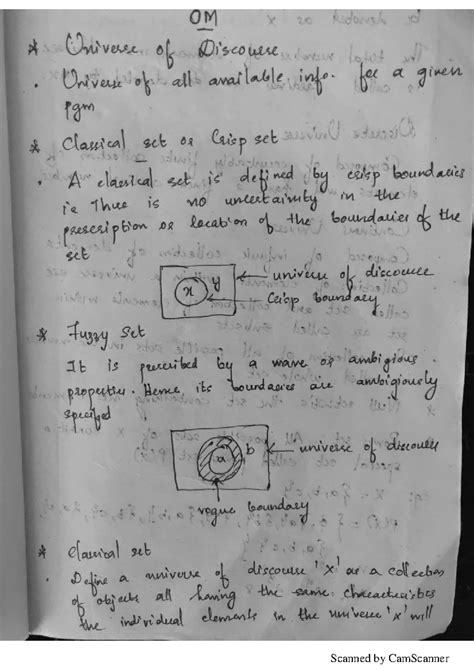 OM
* Universe of Discourse
. Universe of all available info. for a given
pgm
* Classical set or Crisp set
. A classical set is defined by crisp boundaries
ie There is no uncertainity in the
prescription or location of the boundaries of the
set
x y ← universe of discourse
← Crisp boundary
* Fuzzy Set
It is prescribed by a or ambigious
properties. Hence its boundaries are ambigiously
specified
a b ← universe of discourse
vague boundary
* Classical set
. Define a universe of discourse 'x' as a collection
of objects all having the same characteristics
the individual elements in the universe 'x' will
Scanned by CamScanner